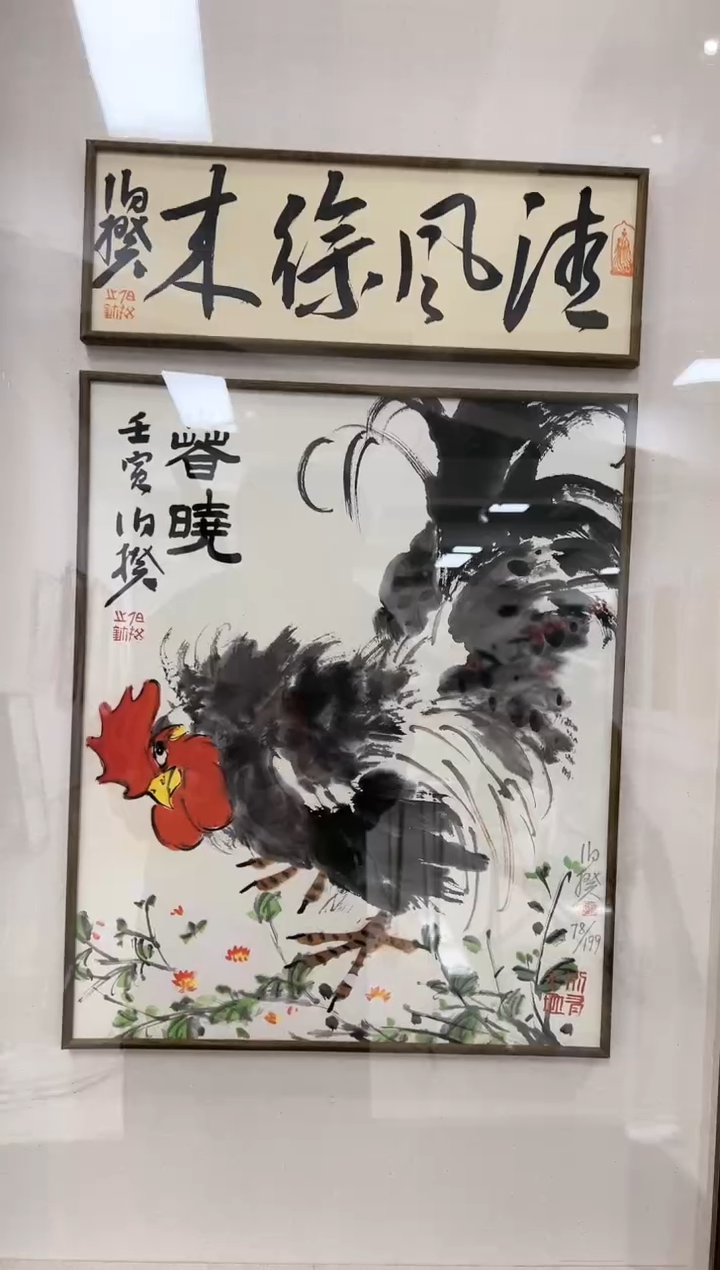 清风徐来
伯揆
春曉
壬寅 伯揆
伯揆
78/199